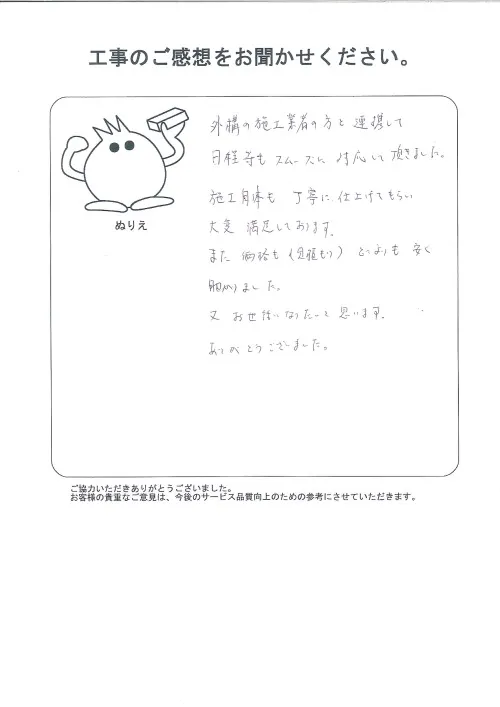 工事のご感想をお聞かせください。
ぬりえ
外構の施工業者の方と連携して
日程等もスムーズに対応して頂きました。
施工自体も丁寧に仕上げてもらい
大変満足しております。
また価格も(見積もり)どこよりも安く
助かりました。
又お世話になりたいと思います。
ありがとうございました。
ご協力いただきありがとうございました。
お客様の貴重なご意見は、今後のサービス品質向上のための参考にさせていただきます。